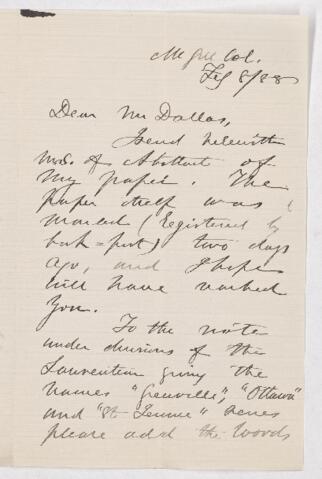 McGill Col.
Feb 8/88
Dear Mr Dallas,
I send herewith
ms. of Abstract of
my paper. The
paper itself was
mailed (Registered by
book-post) two days
ago, and I hope
will have reached
you.
To the note
under divisions of the
Laurentian giving the
names "Grenville", "Ottawa"
and "St Jerome" Series
please add the words